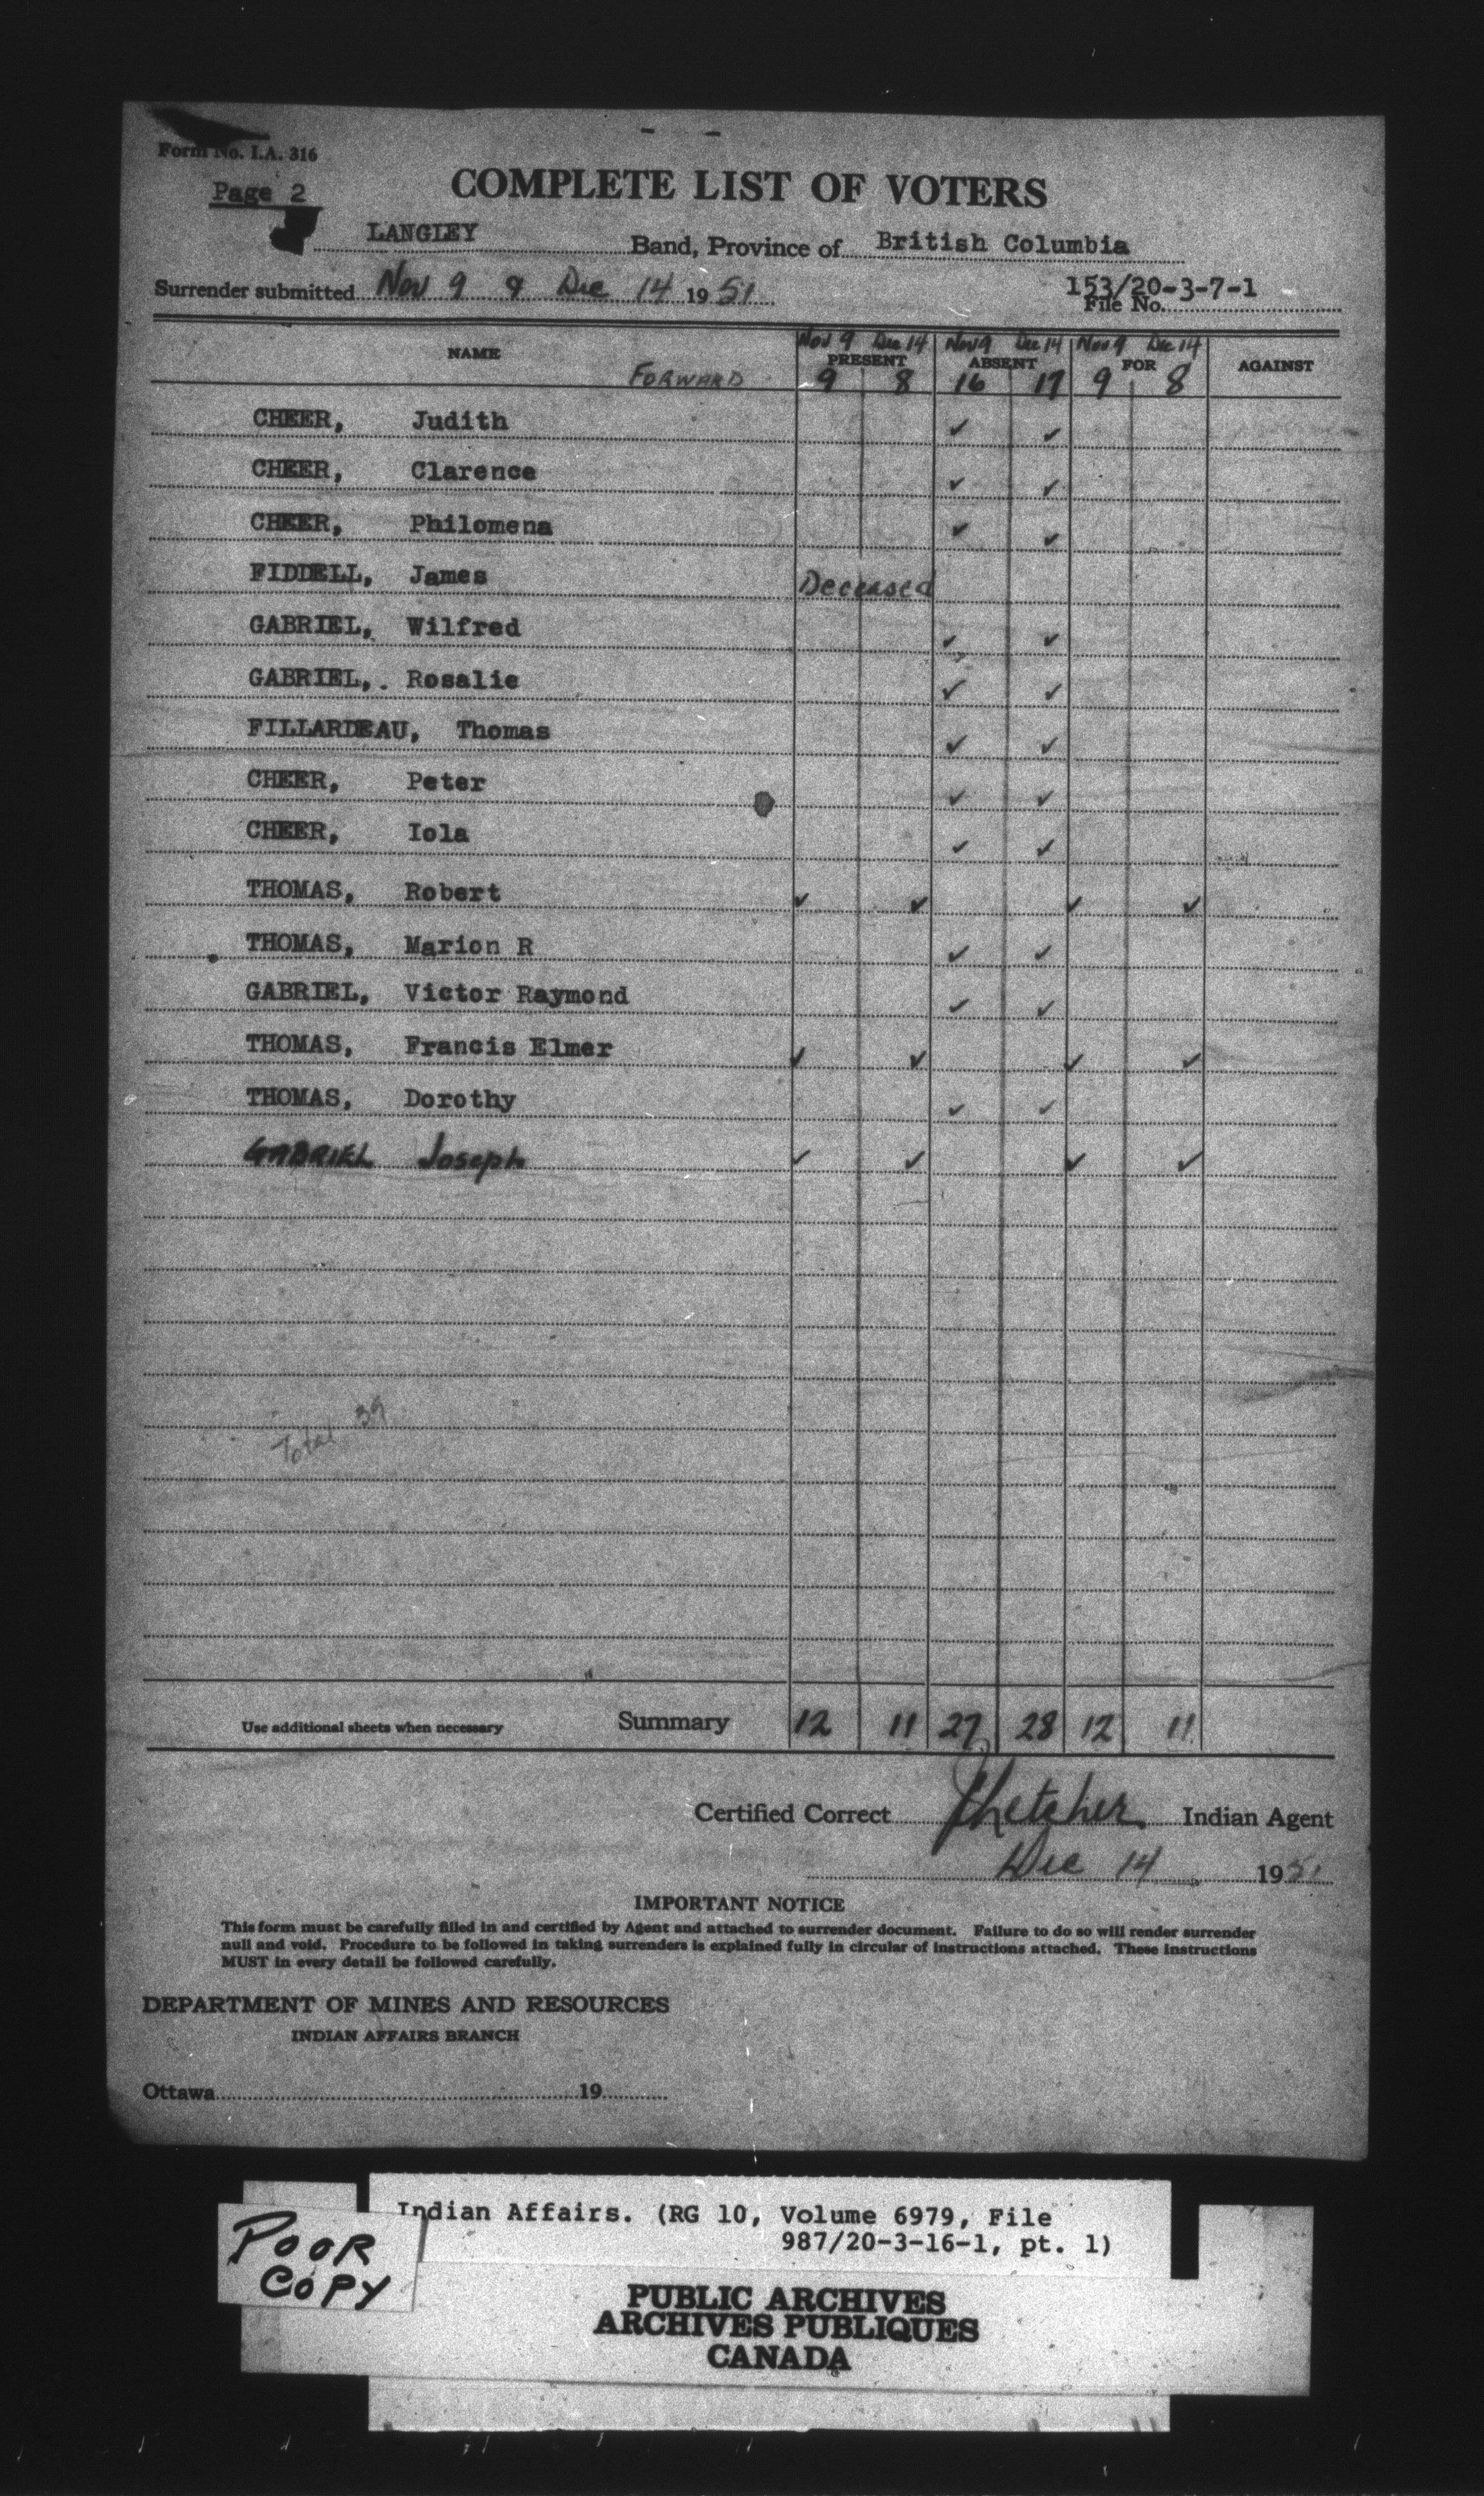 Form No. I.A. 316
Page 2
COMPLETE LIST OF VOTERS
LANGLEY Band, Province of British Columbia
Surrender submitted Nov 9 & Dec 14 1951
153/20-3-7-1
File No.
NAME
Nov 9 Dec 14 Nov 9 Dec 14 Nov 9 Dec 14
PRESENT ABSENT FOR AGAINST
FORWARD 9 8 16 17 9 8
CHEER, Judith ✓ ✓
CHEER, Clarence ✓ ✓
CHEER, Philomena ✓ ✓
FIDDELL, James Deceased
GABRIEL, Wilfred ✓ ✓
GABRIEL,. Rosalie ✓ ✓
FILLARDEAU, Thomas ✓ ✓
CHEER, Peter ✓ ✓
CHEER, Iola ✓ ✓
THOMAS, Robert ✓ ✓ ✓ ✓
THOMAS, Marion R ✓ ✓
GABRIEL, Victor Raymond ✓ ✓
THOMAS, Francis Elmer ✓ ✓ ✓ ✓
THOMAS, Dorothy ✓ ✓
GABRIEL Joseph ✓ ✓ ✓ ✓
Total 39
Use additional sheets when necessary Summary 12 11 27 28 12 11
Certified Correct Indian Agent
Dec 14 1951
IMPORTANT NOTICE
This form must be carefully filled in and certified by Agent and attached to surrender document. Failure to do so will render surrender
null and void. Procedure to be followed in taking surrenders is explained fully in circular of instructions attached. These instructions
MUST in every detail be followed carefully.
DEPARTMENT OF MINES AND RESOURCES
INDIAN AFFAIRS BRANCH
Ottawa 19
POOR
COPY
Indian Affairs. (RG 10, Volume 6979, File
987/20-3-16-1, pt. 1)
PUBLIC ARCHIVES
ARCHIVES PUBLIQUES
CANADA